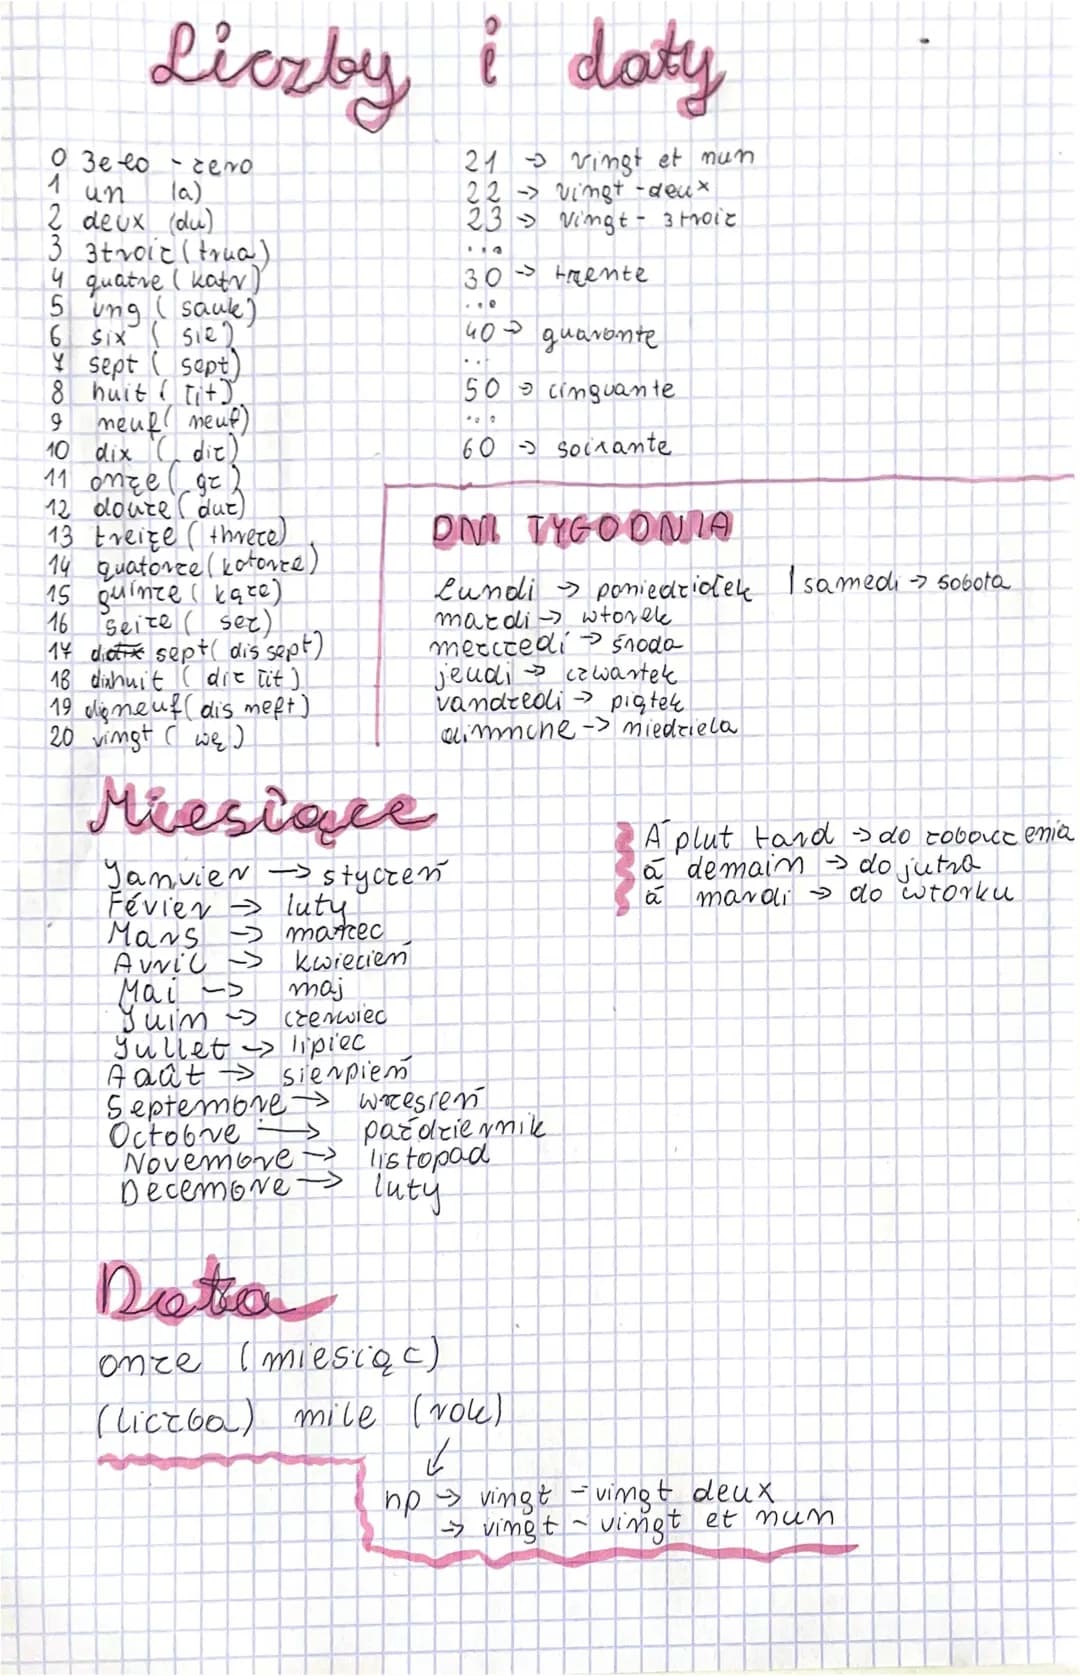 Liczby i daty
0 3eło - zero
1 un (a)
2 deux (du)
3 3troiz (trua)
4 quatre (katr)
5 ung (sauk)
6 six (sie)
7 sept (sept)
8 huit (Tit)
9 neuf (neuf)
10 dix (diz)
11 onze (gz)
12 douze (duz)
13 treize (threze)
14 quatorze (kotorze)
15 quinze (kąze)
16 seize (sez)
17 sept (dis sept)
18 dixhuit (diz tit)
19 digneuf (dis neft)
20 vingt (wę)
21 → vingt et nun
22 → vingt - deux
23 → vingt - 3troiz
...
30 → trente
...
40 → quaronte
...
50 → cinquante
...
60 → soixante
DNI TYGODNIA
Lundi → poniedziołek | samedi → sobota
mardi → wtorek
mercredi → środa
jeudi → czwartek
vandredi → piątek
dimnche → niedziela
Miesiące
Janvier → styczeń
Févier → luty
Mars → marzec
Avril → kwiecień
Mai → maj
Juin → czerwiec
Jullet → lipiec
Aaût → sierpień
Septembre → wrzesień
Octobre → październik
Novembre → listopad
Decembre → luty
A plut tard → do zobaczenia
á demain → do jutra
á mardi → do wtorku
Data
onze (miesiąc)
(liczba) mile (rok)
↓
np → vingt - vingt deux
→ vingt - vingt et nun